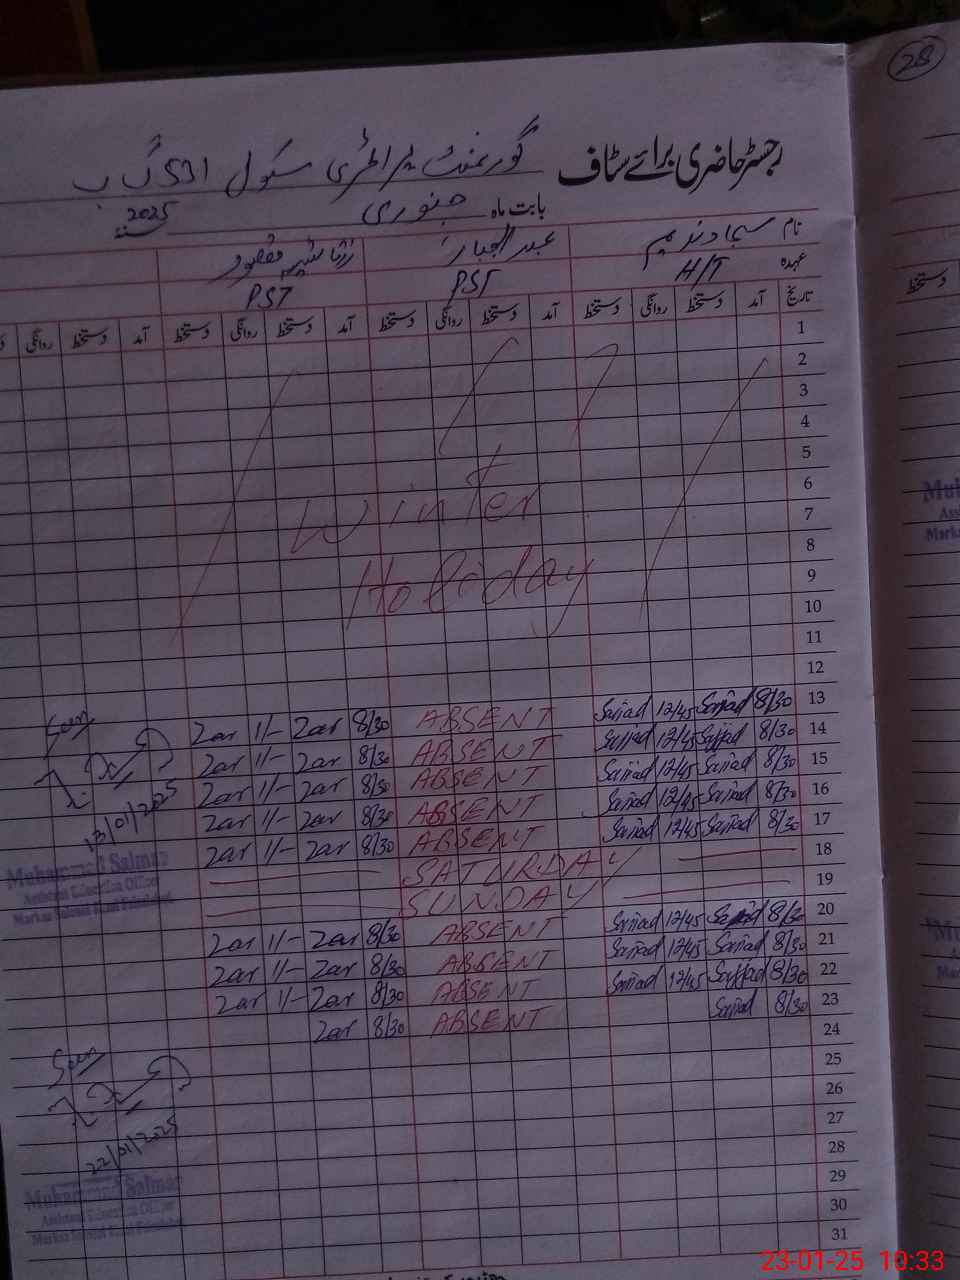 28
رجسٹر حاضری برائے سٹاف گورنمنٹ پرائمری سکول 531 گ ب
بابت ماہ جنوری 2025
نام سجاد ندیم عبدالجبار
عہدہ H/T PST PST
تاریخ آمد دستخط روانگی دستخط آمد دستخط روانگی دستخط آمد دستخط روانگی دستخط آمد دستخط روانگی
دستخط
1
2
3
4
5
6
Winter
7
8
Holiday
9
10
11
12
13 8/30 Sajjad 12/45 Sajjad ABSENT 8/30 Zar 1/- Zar
14 8/30 Sajjad 12/45 Sajjad ABSENT 8/30 Zar 1/- Zar
15 8/30 Sajjad 12/45 Sajjad ABSENT 8/30 Zar 1/- Zar
16 8/30 Sajjad 12/45 Sajjad ABSENT 8/30 Zar 1/- Zar
17 8/30 Sajjad 12/45 Sajjad ABSENT 8/30 Zar 1/- Zar
18 SATURDAY
19 SUNDAY
20 8/30 Sajjad 12/45 Sajjad ABSENT 8/30 Zar 1/- Zar
21 8/30 Sajjad 12/45 Sajjad ABSENT 8/30 Zar 1/- Zar
22 8/30 Sajjad 12/45 Sajjad ABSENT 8/30 Zar 1/- Zar
23 8/30 Sajjad ABSENT 8/30 Zar
24
25
26
27
28
29
30
31
Seen
13/01/2025
Muhammad Salman
Assistant Education Officer
Markaz
Seen
22/01/2025
Muhammad Salman
Assistant Education Officer
Markaz
23-01-25 10:33